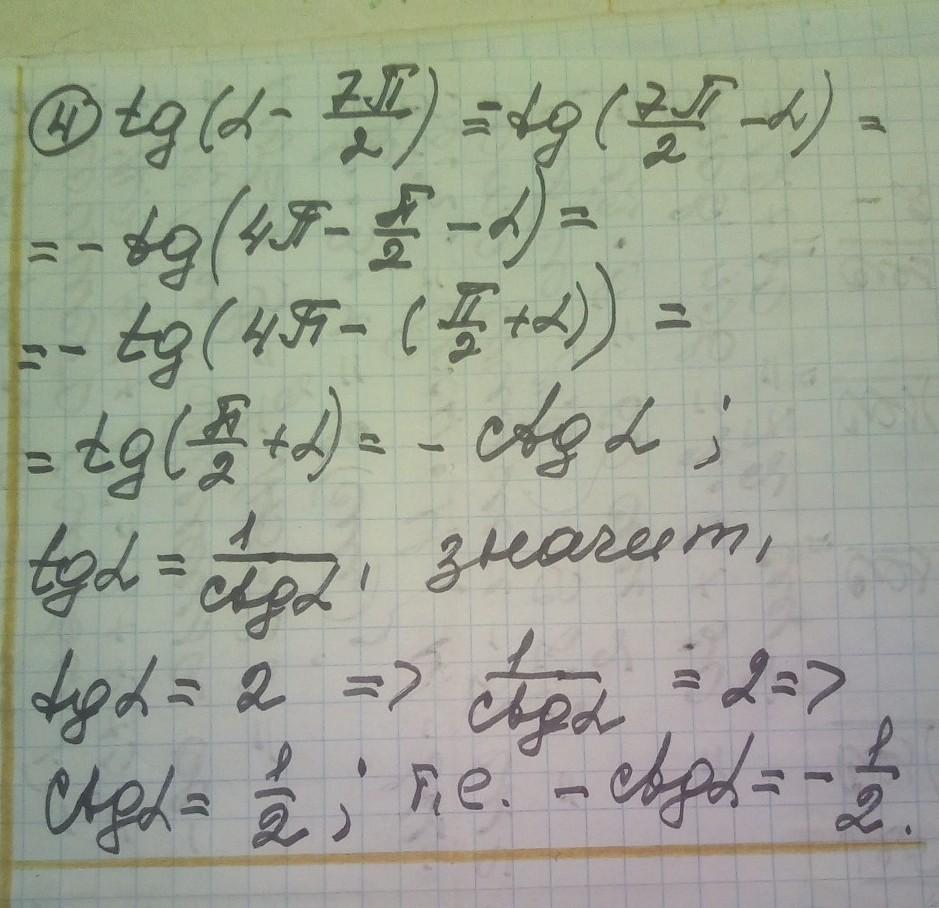 ④ tg(α - 7π/2) = -tg(7π/2 - α) =
= - tg(4π - π/2 - α) =
= - tg(4π - (π/2 + α)) =
= tg(π/2 + α) = - ctg α ;
tgα = 1/ctgα, значит,
tgα = 2 => 1/ctgα = 2 =>
ctgα = 1/2 ; т.е. - ctgα = - 1/2.